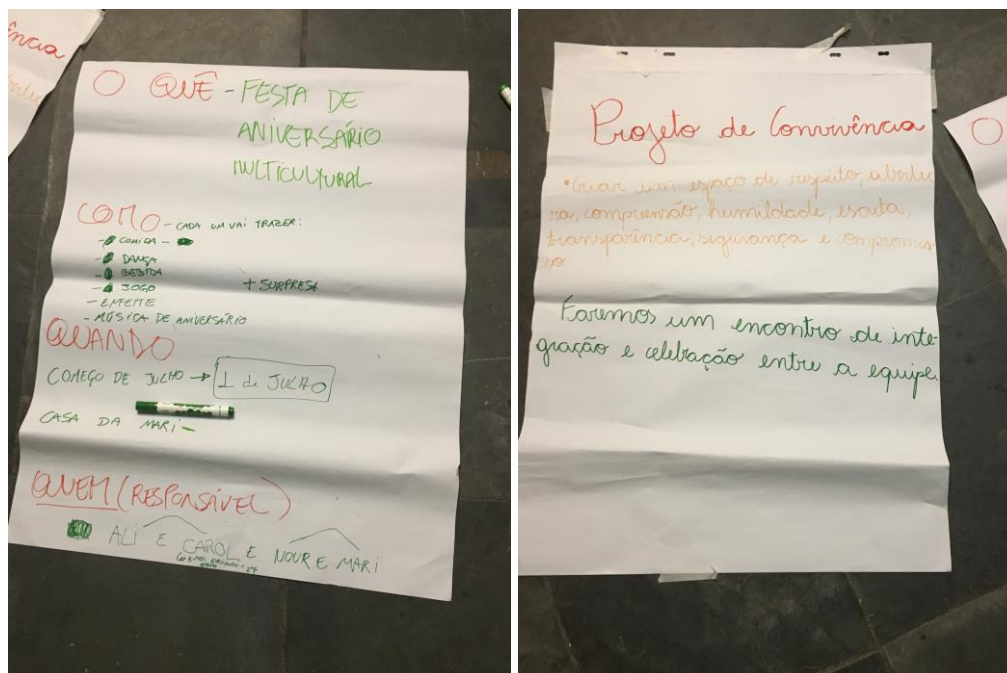 ência
O QUÊ - FESTA DE
ANIVERSÁRIO
MULTICULTURAL
COMO - CADA UM VAI TRAZER:
- COMIDA -
- DANÇA
- BEBIDA
- JOGO + SURPRESA
- ENFEITE
- MÚSICA DE ANIVERSÁRIO
QUANDO
COMEÇO DE JULHO → 1 de JULHO
CASA DA MARI -
QUEM (RESPONSÁVEL)
ALI E CAROL E NOUR E MARI
Projeto de Convivência
• Criar um espaço de respeito, abertu
ra, compreensão, humildade, escuta,
transparência, segurança e compromis
so
Faremos um encontro de inte-
gração e celebração entre a equipe.
O